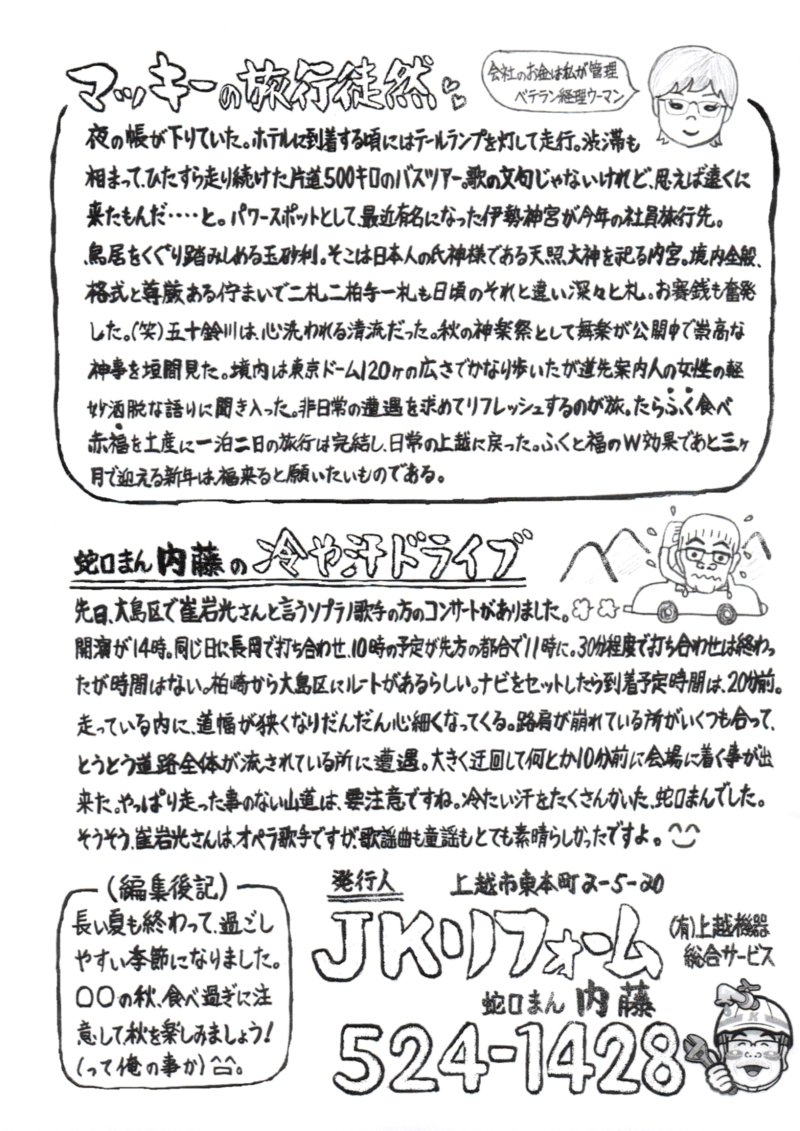 マッキーの旅行徒然
会社のお金は私が管理
ベテラン経理ウーマン
夜の帳が下りていた。ホテルに到着する頃にはテールランプを灯して走行。渋滞も
相まって、ひたすら走り続けた片道500キロのバスツアー。歌の文句じゃないけれど、思えば遠くに
来たもんだ‥‥と。パワースポットとして、最近有名になった伊勢神宮が今年の社員旅行先。
鳥居をくぐり踏みしめる玉砂利。そこは日本人の氏神様である天照大神を祀る内宮。境内全般、
格式と尊厳ある佇まいで二礼二柏手一礼も日頃のそれと違い深々と礼。お賽銭も奮発
した。(笑)五十鈴川は、心洗われる清流だった。秋の神楽祭として舞楽が公開中で崇高な
神事を垣間見た。境内は東京ドーム120ヶの広さでかなり歩いたが道先案内人の女性の軽
妙洒脱な語りに聞き入った。非日常の遭遇を求めてリフレッシュするのが旅。たらふく食べ
赤福を土産に一泊二日の旅行は完結し、日常の上越に戻った。ふくと福のW効果であと三ヶ
月で迎える新年は、福来ると願いたいものである。
蛇口まん内藤の冷や汗ドライブ
先日、大島区で崔岩光さんと言うソプラノ歌手の方のコンサートがありました。
開演が14時。同じ日に長岡で打ち合わせ、10時の予定が先方の都合で11時に。30分程度で打ち合わせは終わっ
たが時間はない。柏崎から大島区にルートがあるらしい。ナビをセットしたら到着予定時間は、20分前。
走っている内に、道幅が狭くなりだんだん心細くなってくる。路肩が崩れている所がいくつも合って、
とうとう道路全体が流されている所に遭遇。大きく迂回して何とか10分前に会場に着く事が出
来た。やっぱり走った事のない山道は、要注意ですね。冷たい汗をたくさんかいた、蛇口まんでした。
そうそう、崔岩光さんは、オペラ歌手ですが、歌謡曲も童謡もとても素晴らしかったですよ。
(編集後記)
長い夏も終わって、過ごし
やすい季節になりました。
〇〇の秋、食べ過ぎに注
意して秋を楽しみましょう!
(って俺の事か)^^。
発行人 上越市東本町2-5-20
JKリフォーム
(有)上越機器
総合サービス
蛇口まん 内藤
524-1428